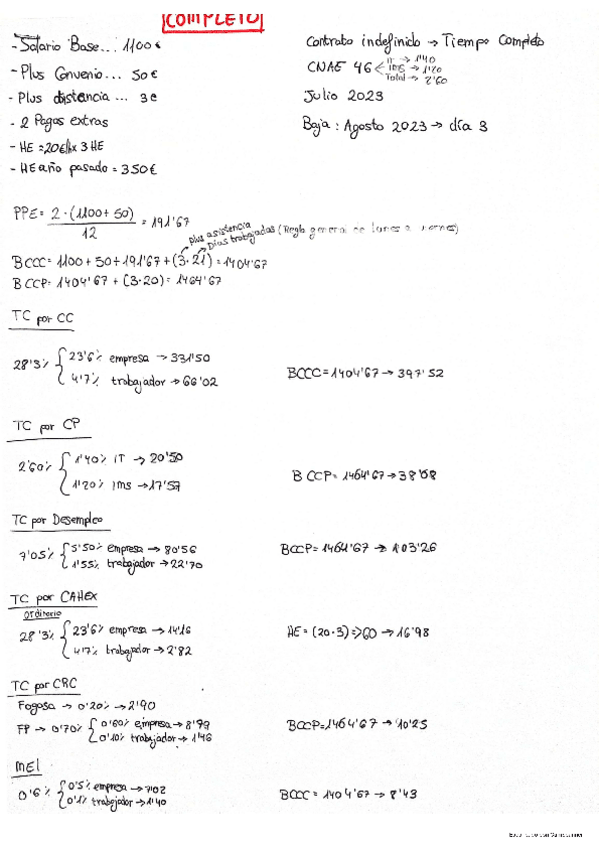 COMPLETO
- Salario Base... 1100€
- Plus Convenio... 50€
- Plus distancia... 3€
- 2 Pagas extras
- HE = 20€/h x 3 HE
- HE año pasado = 350€
Contrato indefinido → Tiempo Completo
CNAE 46 IT → 1'40
IMS → 1'20
Total → 2'60
Julio 2023
Baja: Agosto 2023 → día 3
PPE = 2·(1100+50) / 12 = 191'67
plus asistencia
Días trabajadas (Regla general de lunes a viernes)
BCCC = 1100 + 50 + 191'67 + (3·21) = 1404'67
BCCP = 1404'67 + (3·20) = 1464'67
TC por CC
28'3% 23'6% empresa → 331'50
4'7% trabajador → 66'02
BCCC = 1404'67 → 397'52
TC por CP
2'60% 1'40% IT → 20'50
1'20% IMS → 17'57
BCCP = 1464'67 → 38'08
TC por Desempleo
7'05% 5'50% empresa → 80'56
1'55% trabajador → 22'70
BCCP = 1464'67 → 103'26
TC por CAHEX
ordinario
28'3% 23'6% empresa → 14'16
4'7% trabajador → 2'82
HE = (20·3) => 60 → 16'98
TC por CRC
Fogasa → 0'20% → 2'90
FP → 0'70% 0'60% empresa → 8'79
0'10% trabajador → 1'46
BCCP = 1464'67 → 10'25
MEI
0'6% 0'5% empresa → 7'02
0'1% trabajador → 1'40
BCCC = 1404'67 → 8'43